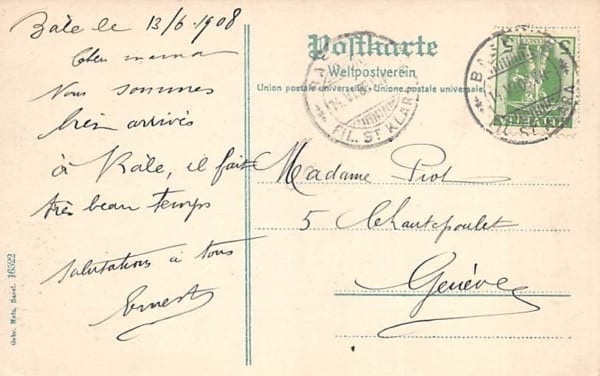 Bâle le 13/6 1908
Chère maman
Nous sommes
bien arrivés
à Bâle, il fait
très beau temps
Salutations à tous
Ernest
Postkarte
Weltpostverein
Union postale universelle. Unione postale universale.
Madame Piot
5 Chantepoulet
Genève
FIL. ST KLARA
BAS
HELVETIA
5
Gebr. Metz, Basel. 16522